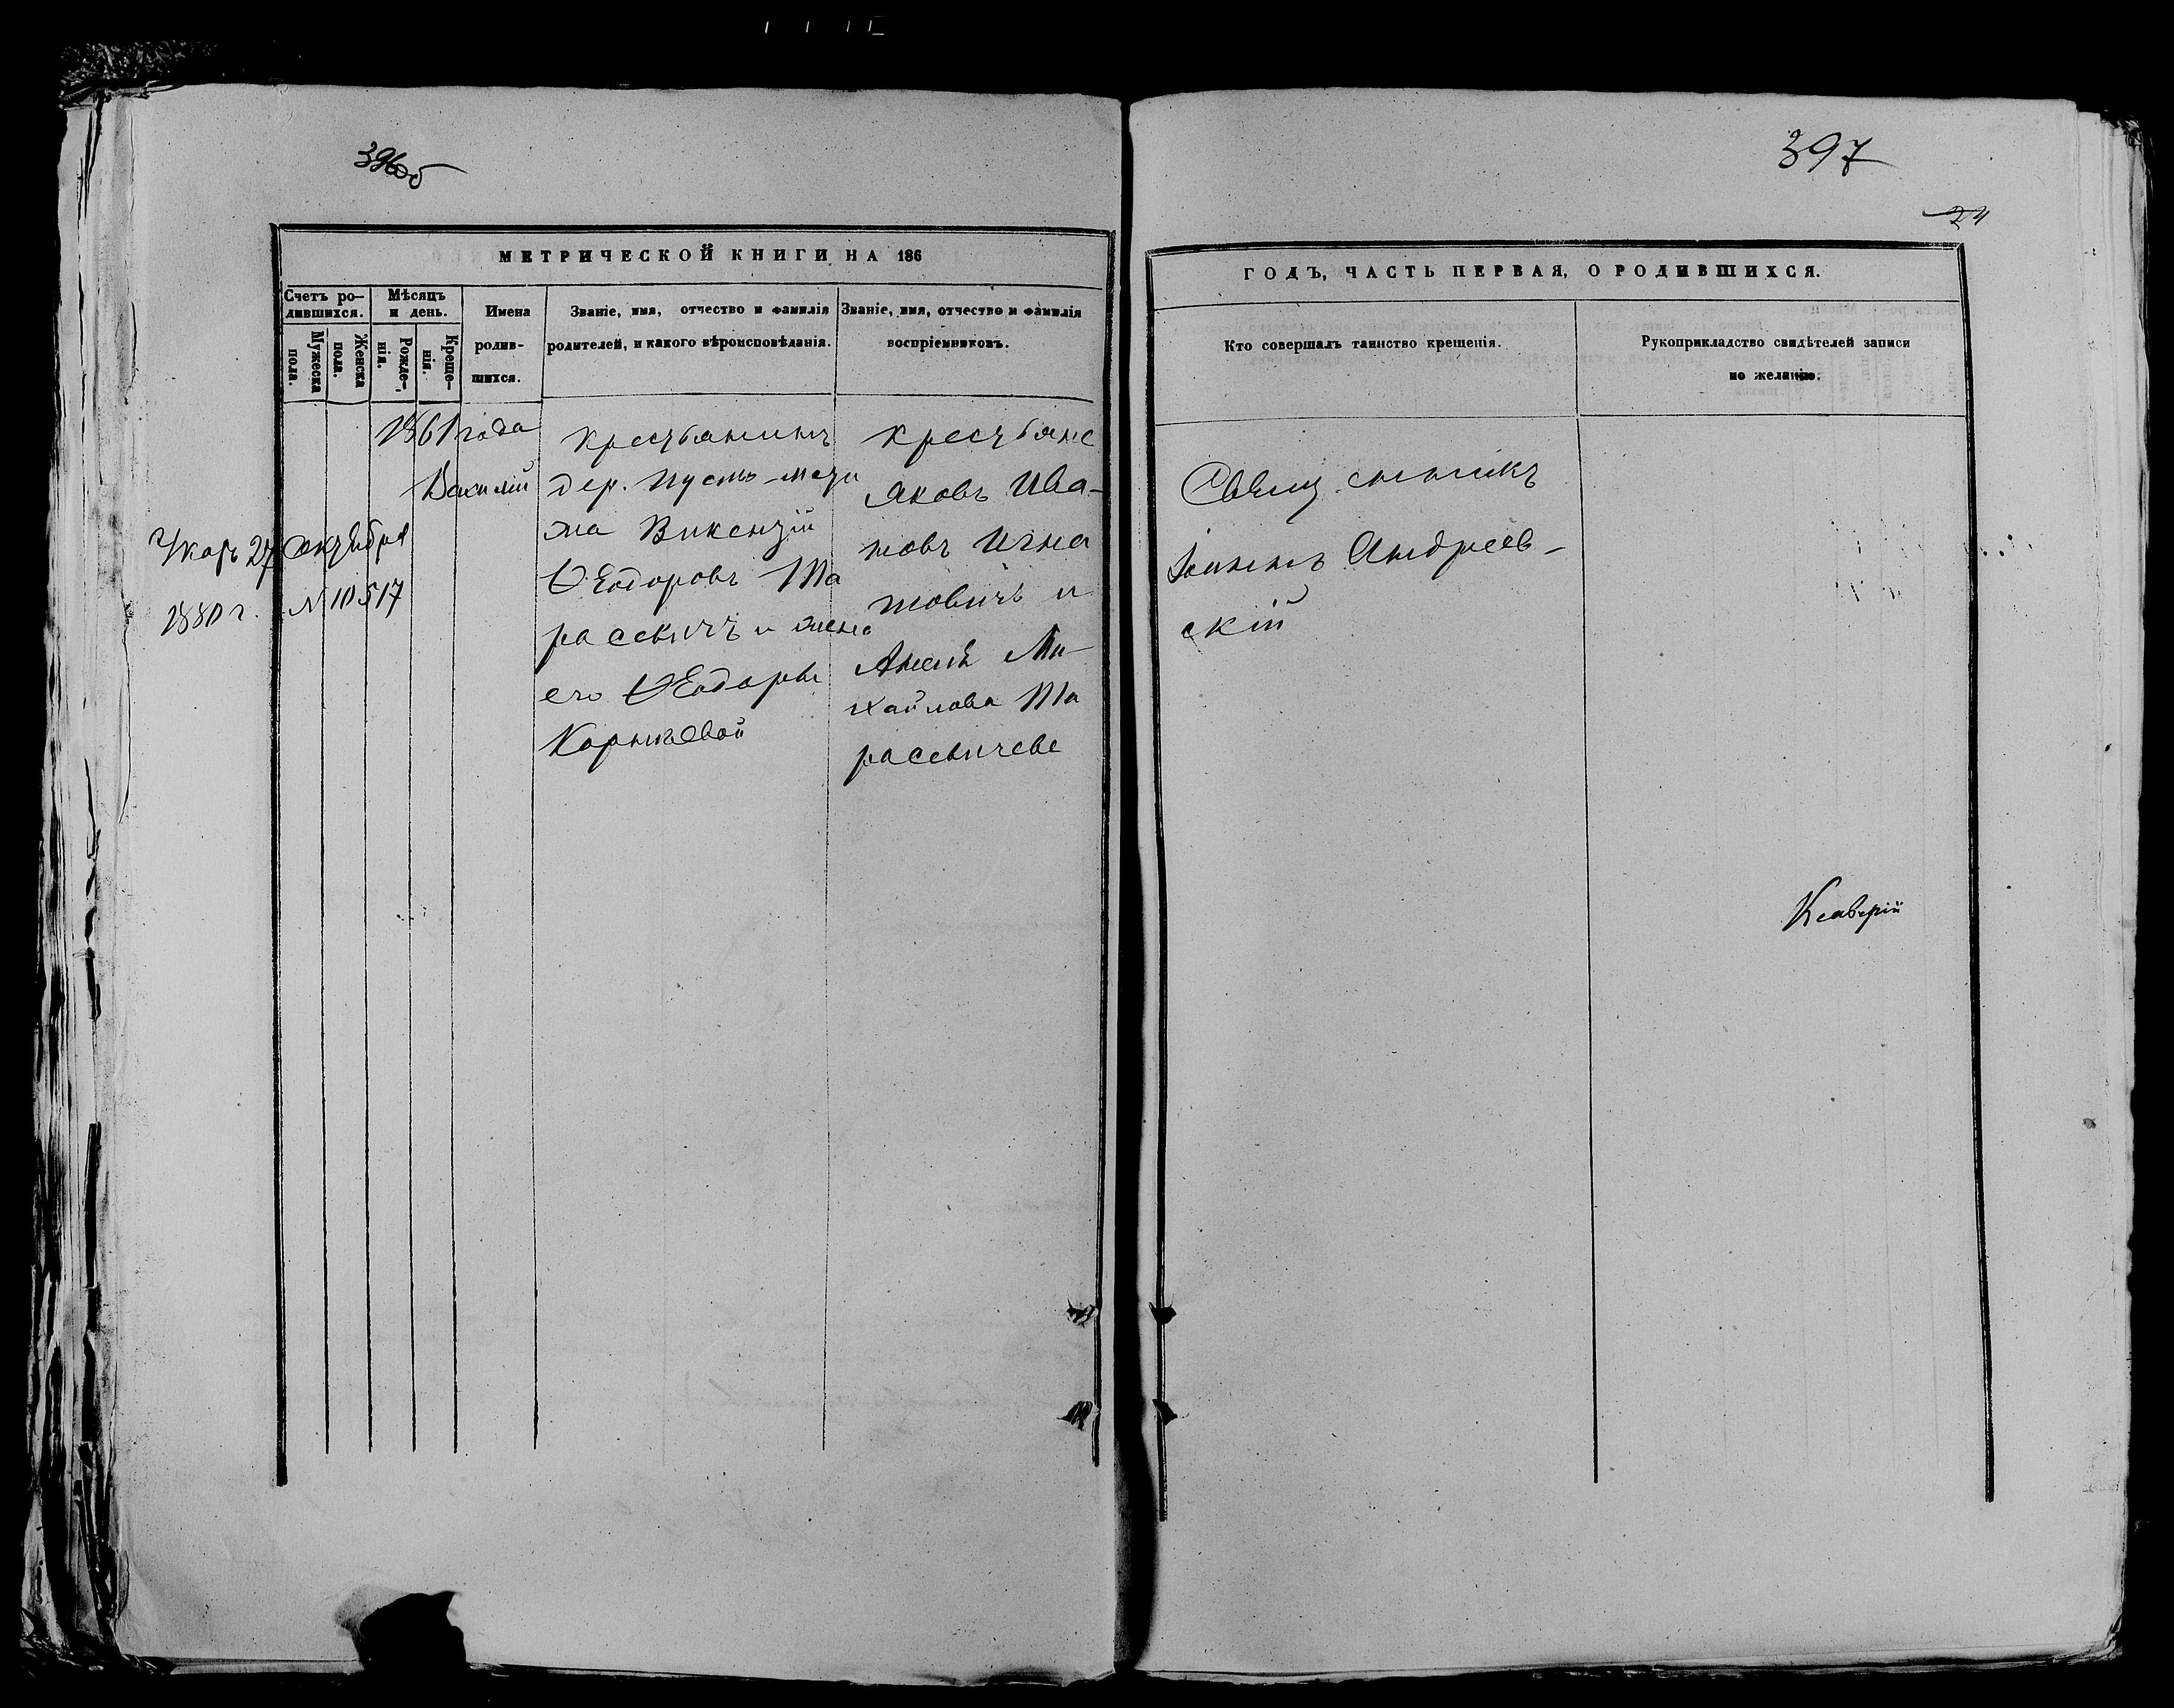 396об
397
24
МЕТРИЧЕСКОЙ КНИГИ НА 186
ГОДЪ, ЧАСТЬ ПЕРВАЯ, О РОДИВШИХСЯ.
Счетъ ро-
дившихся.
Мужеска пола.
Женска пола.
Мѣсяцъ
и день.
Рожде-
нія.
Креще-
нія.
Имена
родив-
шихся.
Званіе, имя, отчество и фамилія
родителей, и какого вѣроисповѣданія.
Званіе, имя, отчество и фамилія
воспріемниковъ.
Кто совершалъ таинство крещенія.
Рукоприкладство свидѣтелей записи
по желанію.
1861 года
Василій
Указъ 27 Октября
1880 г. № 10517
Крестьянинъ
дер. Пусто-мсти
жа Викентій
Ѳеодоровъ Та
расевичъ и жена
его Ѳеодоры
Корнѣевой
Крестьяне
Яковъ Ива-
новъ Игна
товичъ и
Анеля Ми-
хайлова Та
расевичева
Свящ. енникъ
Іоаннъ Андреев-
скій
Ксаверій